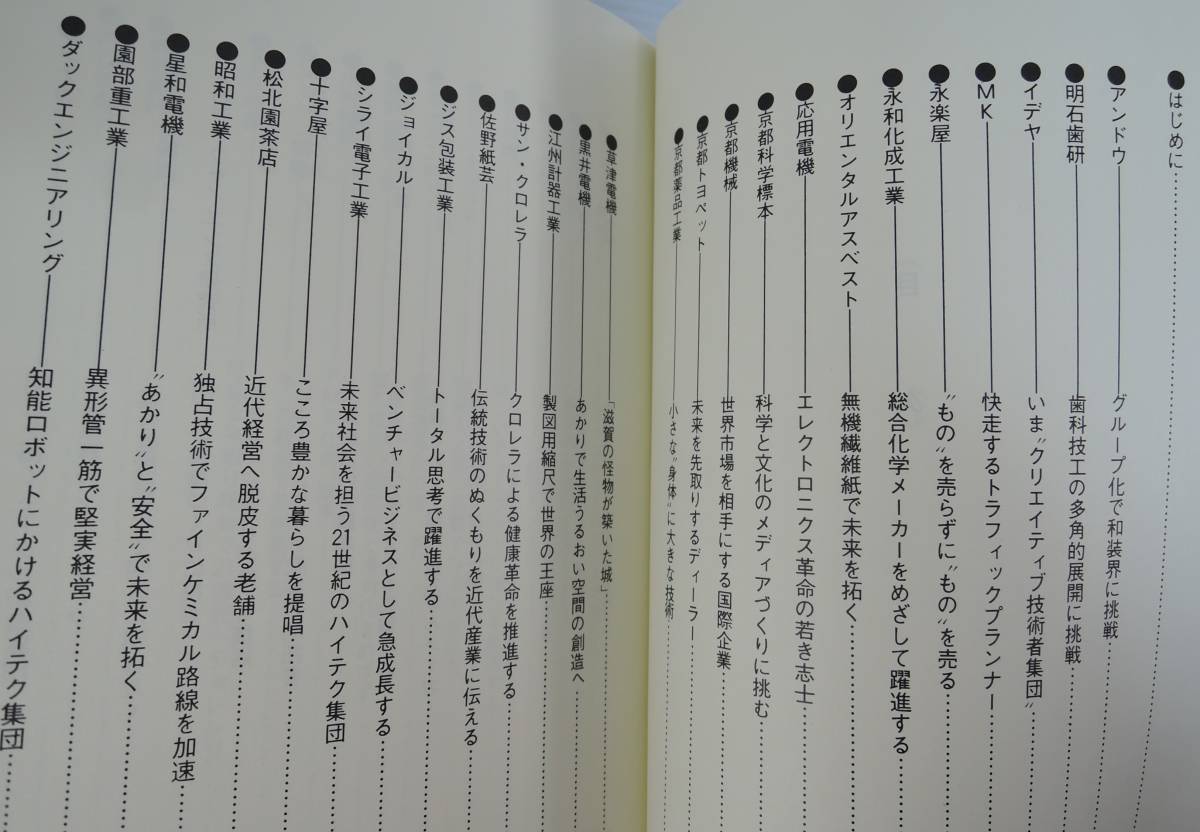 ●はじめに
●アンドウ――グループ化で和装界に挑戦
●明石歯研――歯科技工の多角的展開に挑戦
●イデヤ――いま〝クリエイティブ技術者集団〟
●MK――快走するトラフィックプランナー
●永楽屋――〝もの〟を売らずに〝もの〟を売る
●永和化成工業――総合化学メーカーをめざして躍進する
●オリエンタルアスベスト――無機繊維紙で未来を拓く
●応用電機――エレクトロニクス革命の若き志士
●京都科学標本――科学と文化のメディアづくりに挑む
●京都機械――世界市場を相手にする国際企業
●京都トヨペット――未来を先取りするディーラー
●京都薬品工業――小さな〝身体〟に大きな技術
●草津電機――「滋賀の怪物が築いた城」
●黒井電機――あかりで生活うるおい空間の創造へ
●江州計器工業――製図用縮尺で世界の王座
●サン・クロレラ――クロレラによる健康革命を推進する
●佐野紙芸――伝統技術のぬくもりを近代産業に伝える
●ジス包装工業――トータル思考で躍進する
●ジョイカル――ベンチャービジネスとして急成長する
●シライ電子工業――未来社会を担う21世紀のハイテク集団
●十字屋――こころ豊かな暮らしを提唱
●松北園茶店――近代経営へ脱皮する老舗
●昭和工業――独占技術でファインケミカル路線を加速
●星和電機――〝あかり〟と〝安全〟で未来を拓く
●園部重工業――異形管一筋で堅実経営
●ダックエンジニアリング――知能ロボットにかけるハイテク集団